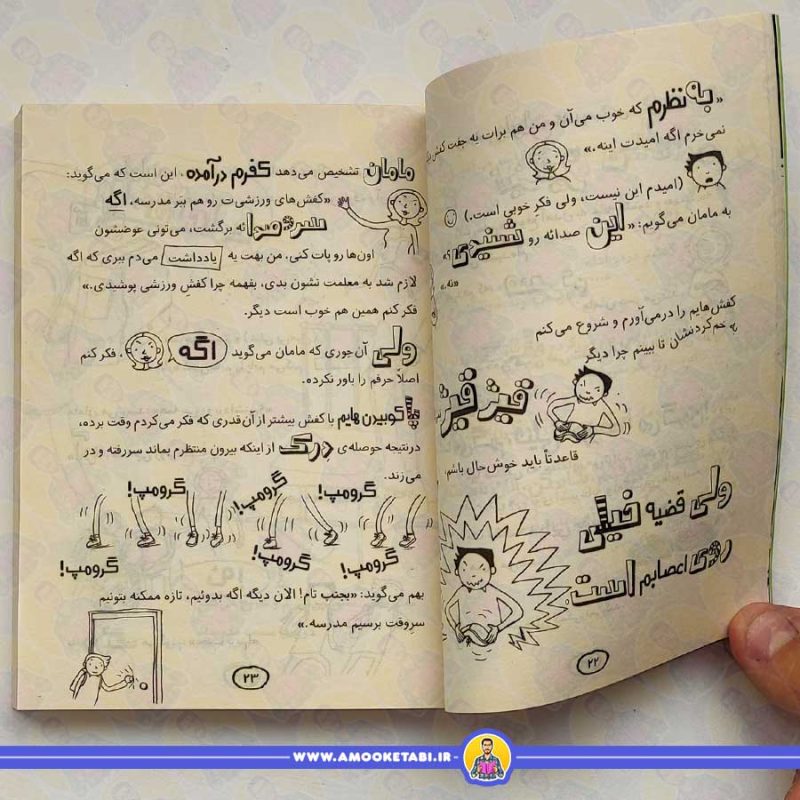 «به نظرم که خوب می‌آن و من هم برات یه جفت کفش
نمی‌خرم اگه امیدت اینه.»
(امیدم این نیست، ولی فکرِ خوبی است.)
به مامان می‌گویم: «این صدائه رو شنیدی؟
«نه.»
کفش‌هایم را درمی‌آورم و شروع می‌کنم
به خم‌کردنشان تا ببینم چرا دیگر
قیژ قیژ
قاعدتاً باید خوش‌حال باشم.
ولی قضیه خیلی
روی اعصابم است.
۲۲
مامان تشخیص می‌دهد کفرم درآمده، این است که می‌گوید:
«کفش‌های ورزشی‌ت رو هم بَبَر مدرسه، اگه
سر و صدائه برگشت، می‌تونی عوضشون
اون‌ها رو پات کنی، من بهت یه یادداشت می‌دم ببری که اگه
لازم شد به معلمت نشون بدی، بفهمه چرا کفشِ ورزشی پوشیدی.»
فکر کنم همین هم خوب است دیگر.
ولی آن‌جوری که مامان می‌گوید اگه، فکر کنم
اصلاً حرفم را باور نکرده.
پا کوبیدن هایم با کفش بیشتر از آن‌قدری که فکر می‌کردم وقت برده،
درنتیجه حوصله‌ی دِرِک از اینکه بیرون منتظرم بماند سررفته و در
می‌زند.
گرومپ! گرومپ! گرومپ!
گرومپ! گرومپ! گرومپ!
بهم می‌گوید: «بجنب تام! الان دیگه اگه بدوئیم، تازه ممکنه بتونیم
سرِوقت برسیم مدرسه.»
۲۳
WWW.AMOOKETABI.IR